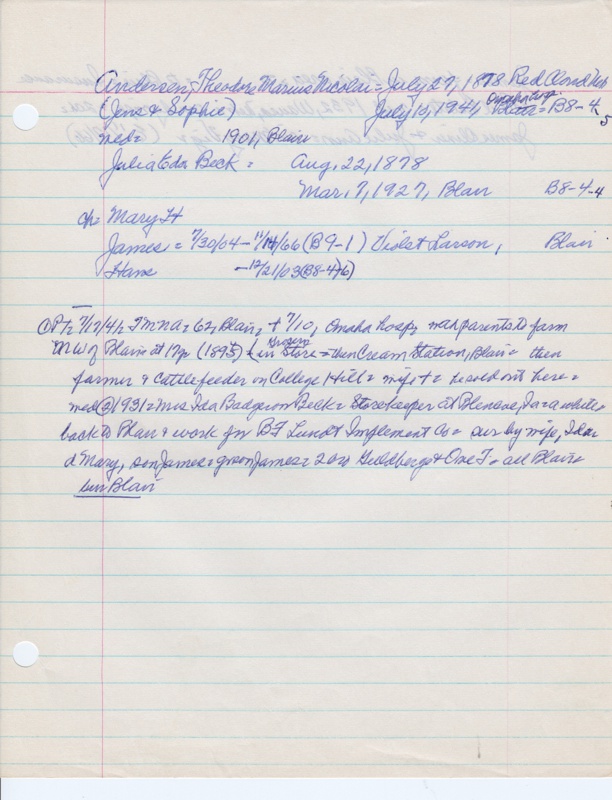 Andersen, Theodore Marius Nicolai = July 27, 1878 Red Cloud Neb
(Jens & Sophie) July 10, 1941, Omaha Hosp. Blair = B8-4-5
med = 1901, Blair
Julia Edor Beck = Aug, 22, 1878
Mar, 7, 1927, Blair B8-4-4
ch = Mary H
James = 7/30/04 - 11/14/66 (B9-1) Violet Larson, Blair
Hans - 12/21/03 (B8-4-6)
7/17/41 = TMNA = 62, Blair, + 7/10, Omaha hosp, parents to farm
NW of Blair at 17yr (1895) & in Grocery Store = then Cream Station, Blair = then
farmer & Cattlefeeder on College Hill = wife + = he sold out here =
med (2) 1931 = Mrs Ida Badgerow Beck = Storekeeper at Blencoe, Ia = a while =
back to Blair & work for BF Lundt Implement Co = sur by wife, Ida =
d Mary, son James = gson James = 2 bro & One = all Blair =
bur Blair